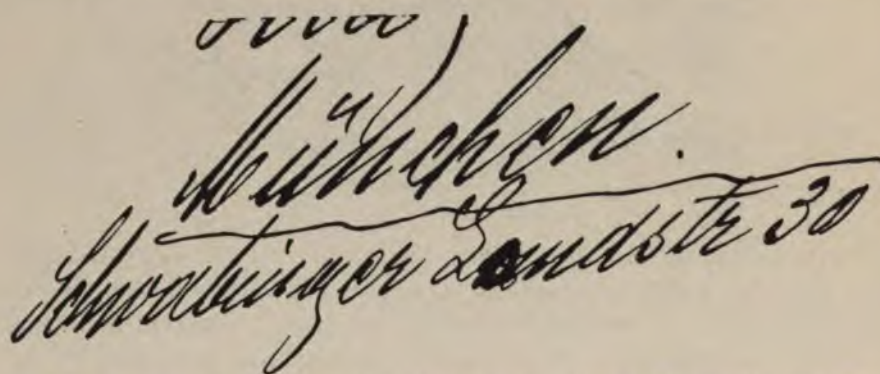 München.
Schwabinger Landstr 30